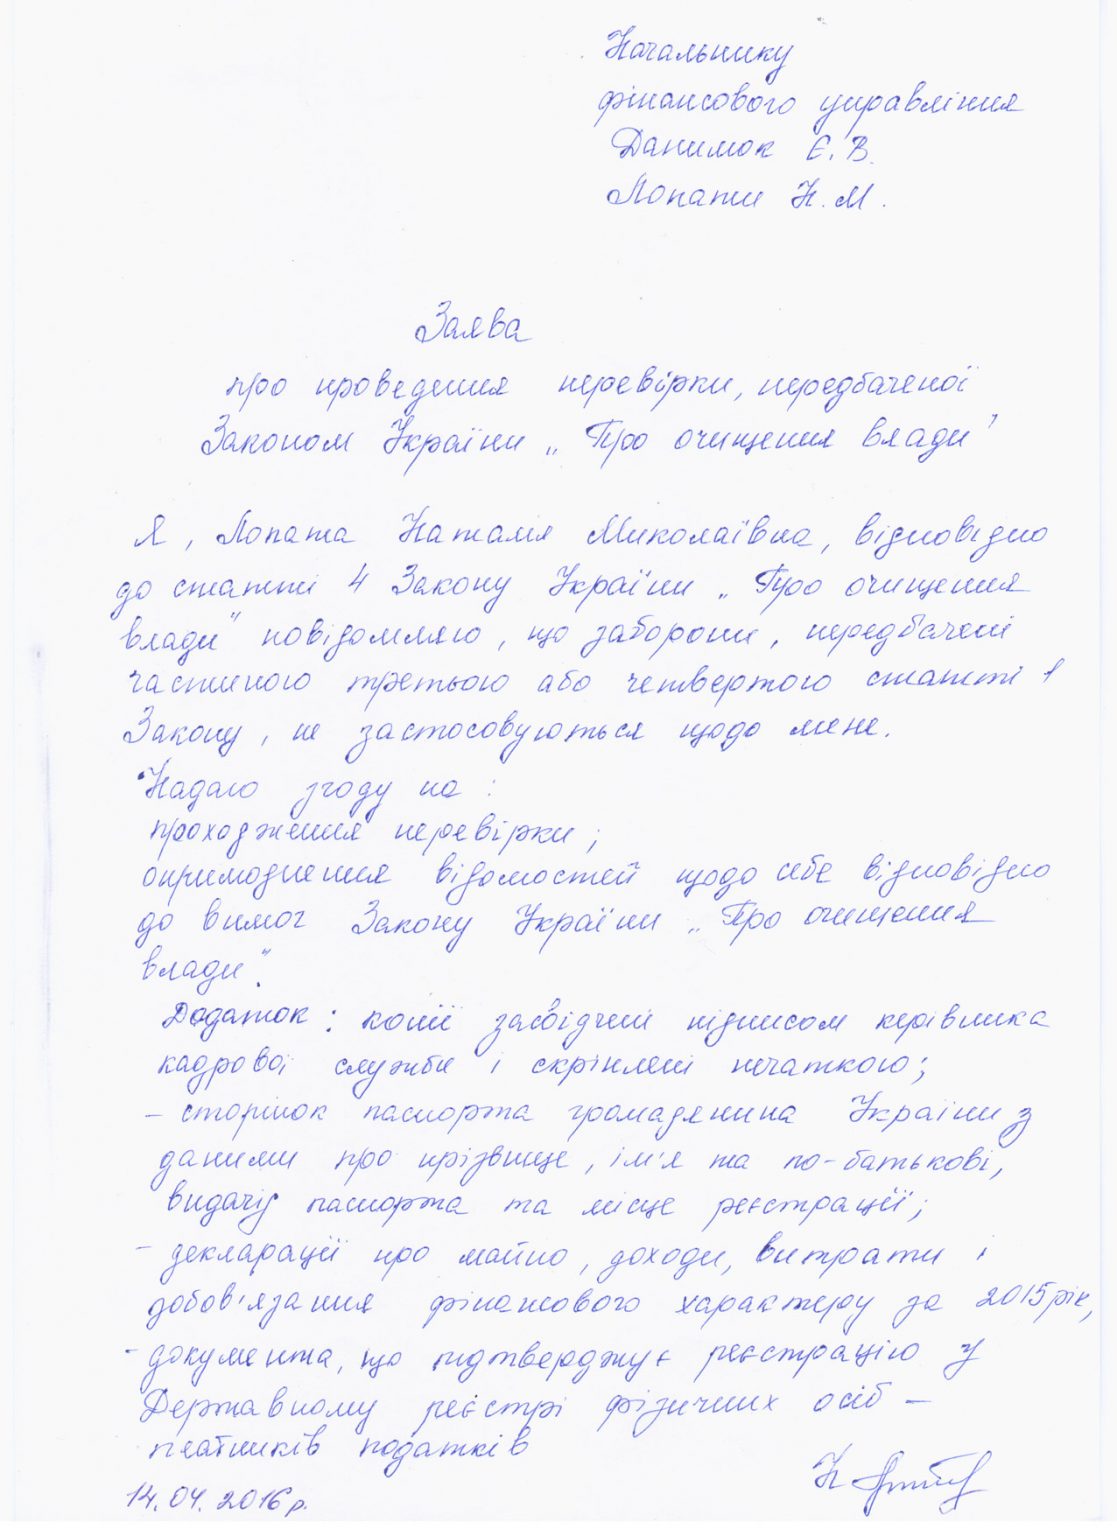 Начальнику
фінансового управління
Данилюк Є. В.
Лопати Н. М.
Заява
про проведення перевірки, передбаченої
Законом України „Про очищення влади"
Я, Лопата Наталія Миколаївна, відповідно
до статті 4 Закону України „Про очищення
влади" повідомляю, що заборони, передбачені
частиною третьою або четвертою статті 1
Закону, не застосовуються щодо мене.
Надаю згоду на :
проходження перевірки;
оприлюднення відомостей щодо себе відповідно
до вимог Закону України „Про очищення
влади".
Додаток : копії засвідчені підписом керівника
кадрової служби і скріплені печаткою;
- сторінок паспорта громадянина України з
даними про прізвище, ім'я та по-батькові,
видачу паспорта та місце реєстрації;
- декларації про майно, доходи, витрати і
зобов'язання фінансового характеру за 2015 рік,
- документа, що підтверджує реєстрацію у
Державному реєстрі фізичних осіб –
платників податків
14.04.2016 р.